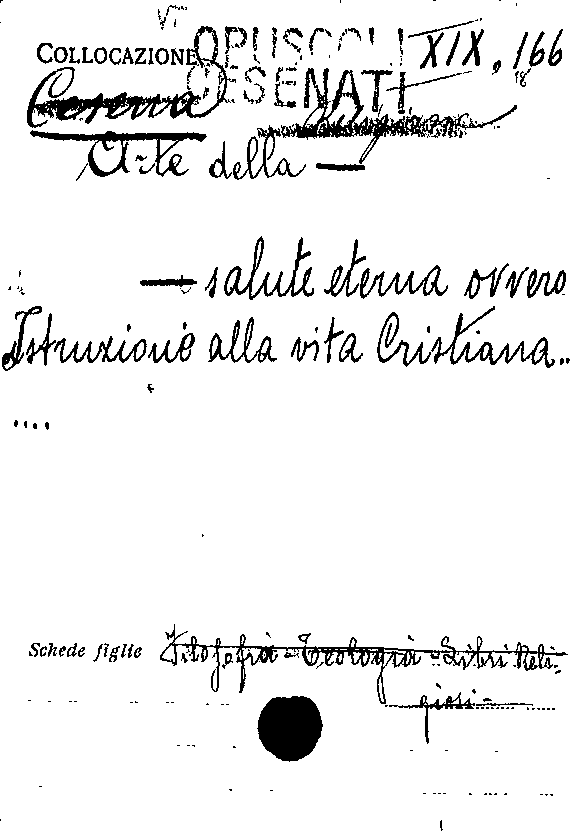 COLLOCAZIONE OPUSCOLI CESENATI XIX, 166
Cesena
Arte della —
— salute eterna ovvero
Istruzione alla vita Cristiana..
....
Schede figlie Filosofia - Teologia - Libri Reli-
giosi -